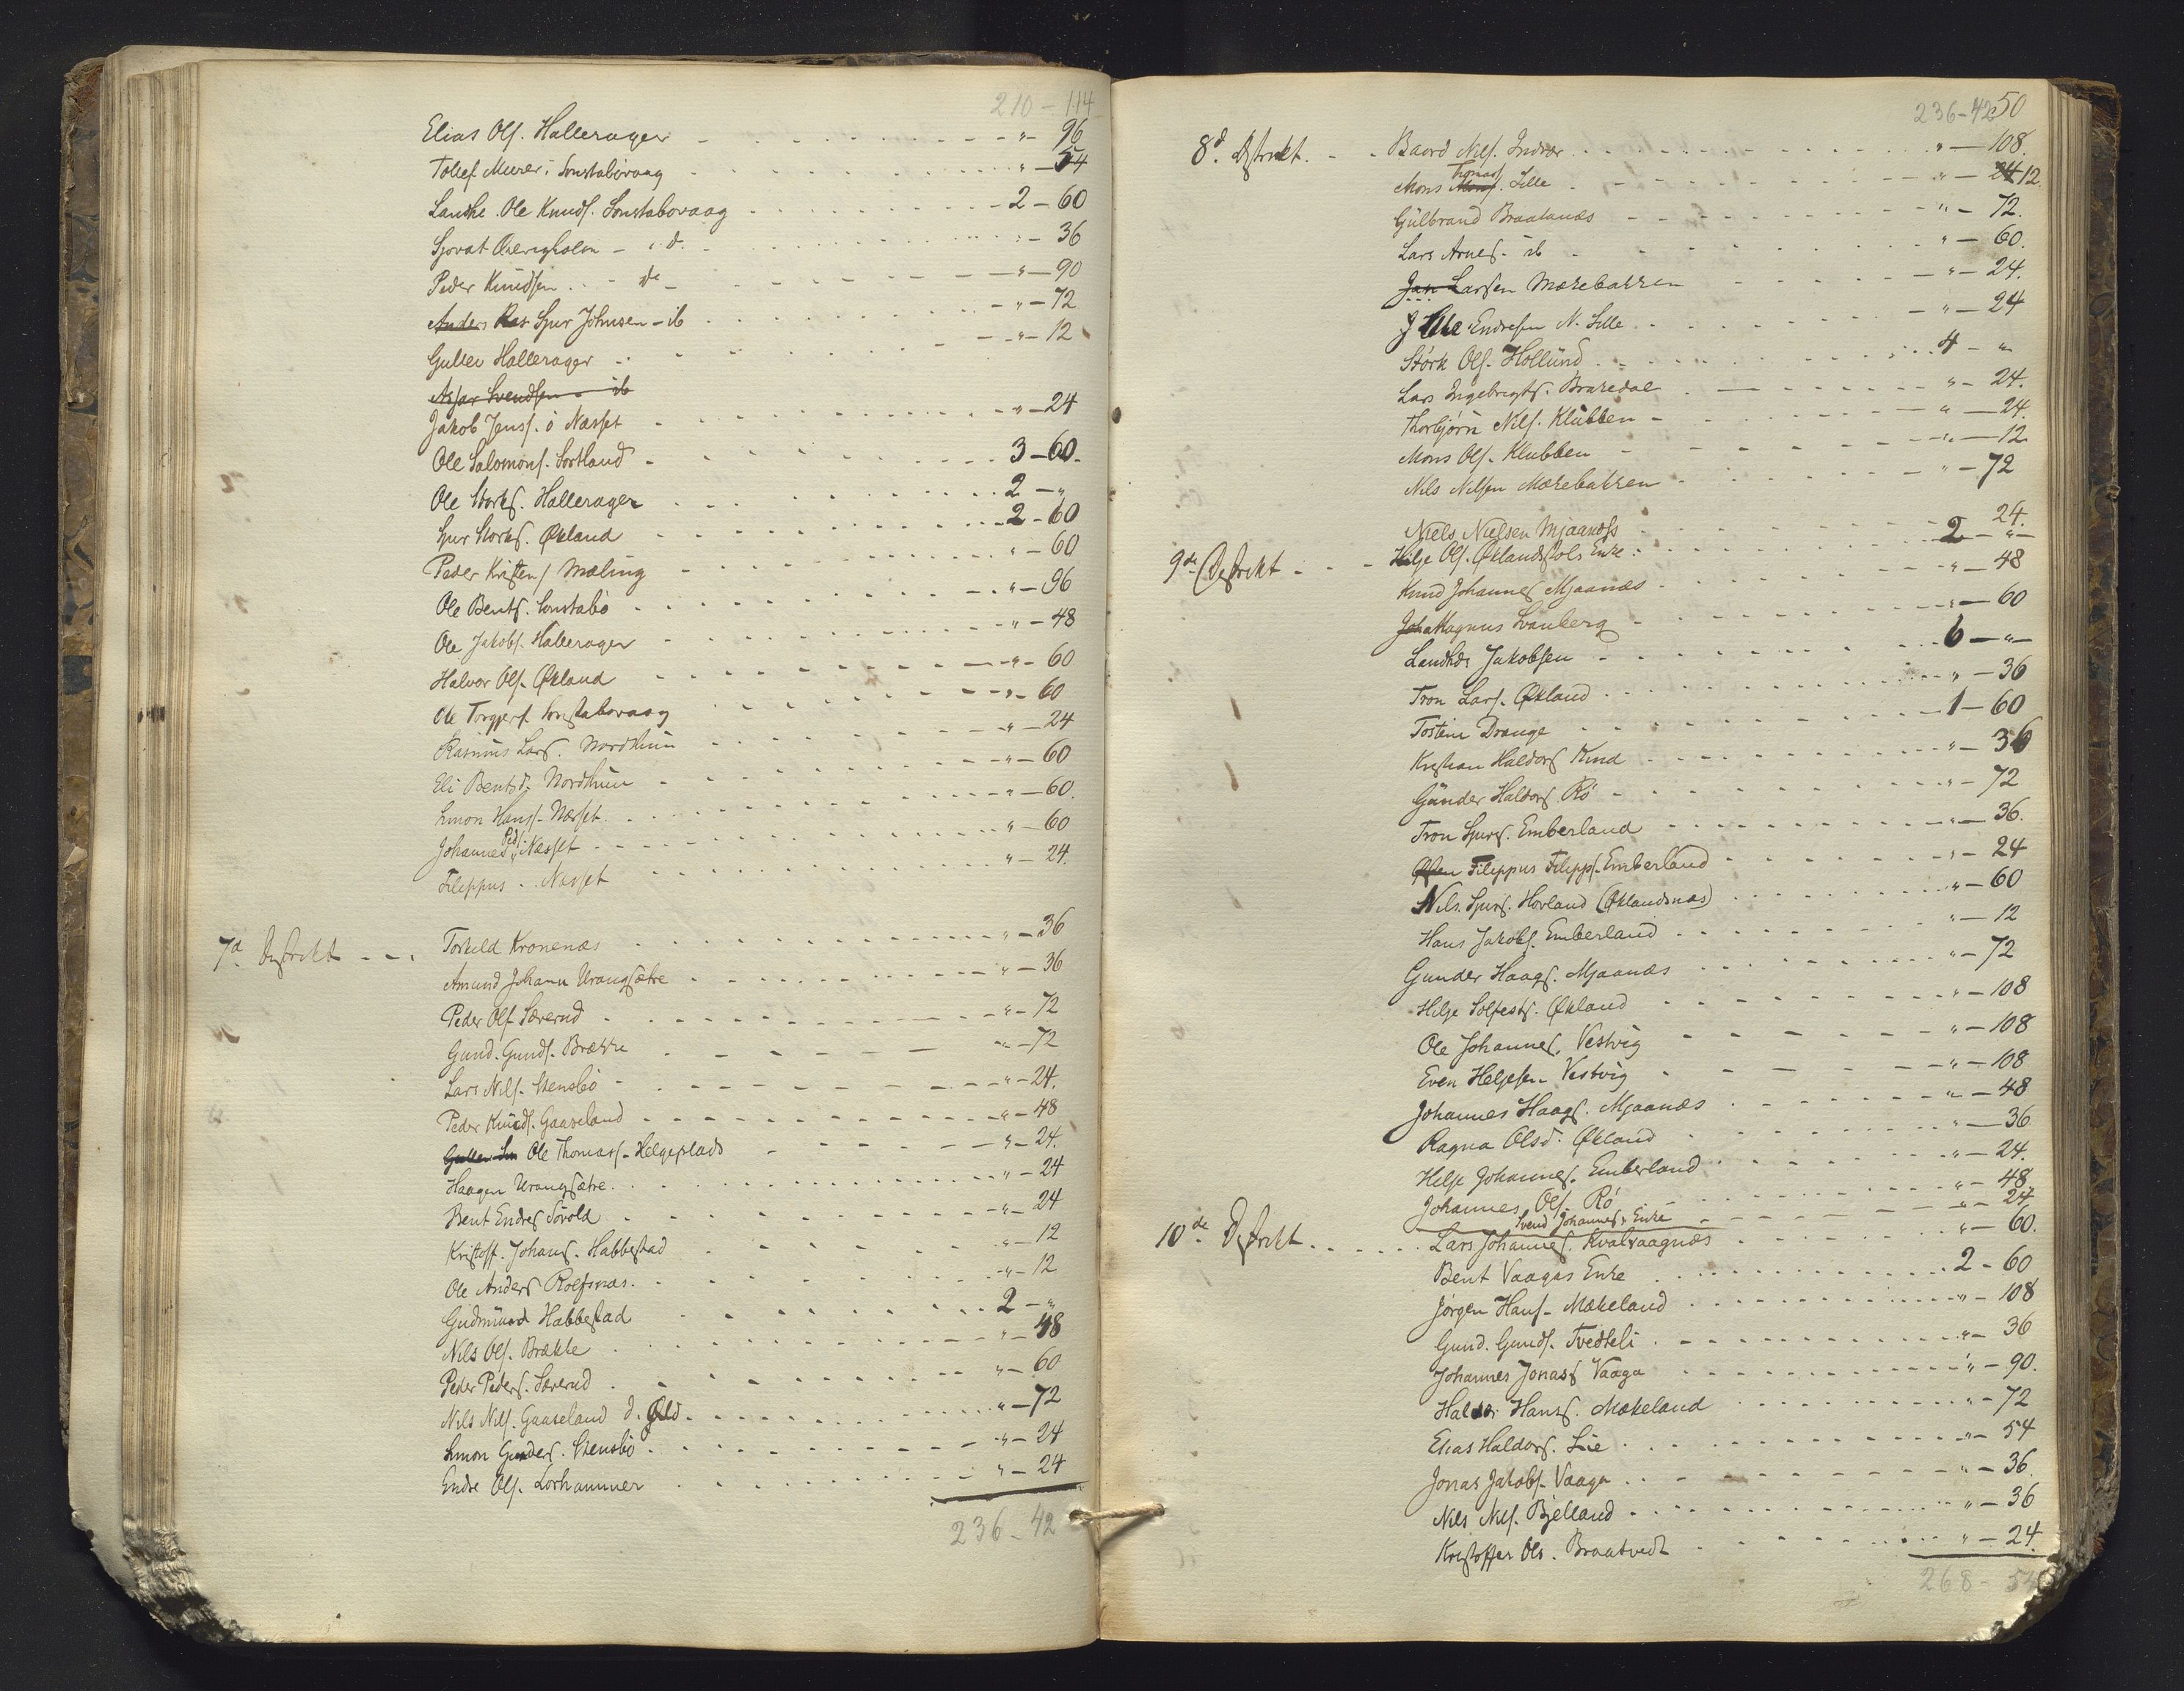 210 - 114
Elias Olss. Hallerager " - 96
Tollef Murer i Sonstabövaag " - 54
Lauske Ole Knuds. Sonstabovaag 2 - 60
Sjovat - i. d. " - 36
Peder Knudsen - de " - 90
Anders Ras Sjur Johnsen - ib " - 72
Gullei Hallerager " - 12
Svendsen - ib
Jakob Jenss. i Næsset " - 24
Ole Salomons. Sortland 3 - 60.
Ole Storks. Hallerager 2 - "
Sjur Storks. Økland 2 - 60
Peder Kristens Mæling " - 60
Ole Bents. Sonstabö " - 96
Ole Jakobs. Hallerager " - 48
Halvor Ols. Økland " - 60
Ole Torgjers. Sonstabovaag " - 60
Rasmus Lars. Nordhuu " - 24
Eli Bentsd. Nordhuu " - 60
Simon Hans. Næsset " - 60.
Johannes Peds. Næsset " - 60
Filippus Næsset " - 24.
7d Distrikt - - - Torkild Kronenæs " - 36
Amund Johann Urangsætre " - 36
Peder Ols. Særevd " - 72
Gund. Gunds. Brække " - 72
Lars Nils. Stensbö " - 24.
Peder Knuds. Gaaseland " - 48
Ole Thomas. Helgeplads " - 24.
Haagen Urangsætre " - 24
Bent Endres Sörold " - 24
Kristoff. Johans. Habbestad " - 12
Ole Anders Rolfsnæs. " - 12
Gudmund Habbestad 2 - "
Nils Ols. Brække " - 48
Peder Peders. Særevd " - 60
Nils Nils. Gaaseland d. Æld. " - 72
Simon Gunders. Stensbö " - 24
Endre Ols. Lorhammer " - 24
236 - 42
236 - 42 50
8d. Distrikt. - - Baard Nils. Indvær " - 108.
Mons Mons. Thomas. Lille " - 24 12.
Gulbrand Braatanæs " - 72.
Lars Arnes. ib " - 60.
Jan Larsen Mærebakken " - 24.
Endresen N. Lille " - 24
Störk Ols. Hollund 4 - "
Lars Ingebrigts. Brædal " - 24.
Thorbjörn Nils. Klubben " - 24.
Mons Ols. Klubben " - 12
Nils Nilsen Mærebakken " - 72
Niels Nielsen Mjaanæss 24.
9de Distrikt - - - Helje Ols. Øklandsstöls Enke 2 - "
Knud Johannes Mjaanæs " - 48
Magnus Svanberg " - 60
Landhdr. Jakobsen 6 - "
Tron Lars. Økland " - 36
Tosten Drange 1 - 60
Kristian Haldors Rind " - 36
Gunder Haldors Rö " - 72
Tron Sjurs. Emberland " - 36.
Filippus Filipps. Emberland " - 24
Nils Sjurs. Hovland (Øklandsnæs) " - 60
Hans Jakobs. Emberland " - 12
Gunder Haags. Mjaanæs " - 72
Helje Solfests. Økland " - 108
Ole Johannes. Vestvig " - 108
Even Heljesen Vestvig " - 108
Johannes Haags. Mjaanæs " - 48
Ragna Olsd. Økland " - 36
Helje Johannes. Emberland " - 24.
Johannes Ols. Rö " - 48
Svend Johannes. Enke " - 24
10de Distrikt Lars Johannes. Kvalvaagnæs " - 60.
Bent Vaagas Enke 2 - 60
Jörgen Hans. Mækeland " - 108
Gund. Gunds. Tvedteli " - 36
Johannes Jonass Vaaga " - 90.
Haldor Hans. Mækeland " - 72
Elias Haldors. Lie " - 54
Jonas Jakobs. Vaaga " - 36.
Nils Nils. Bjelland " - 36
Kristoffer Ols. Braatvedt " - 24.
268 - 54